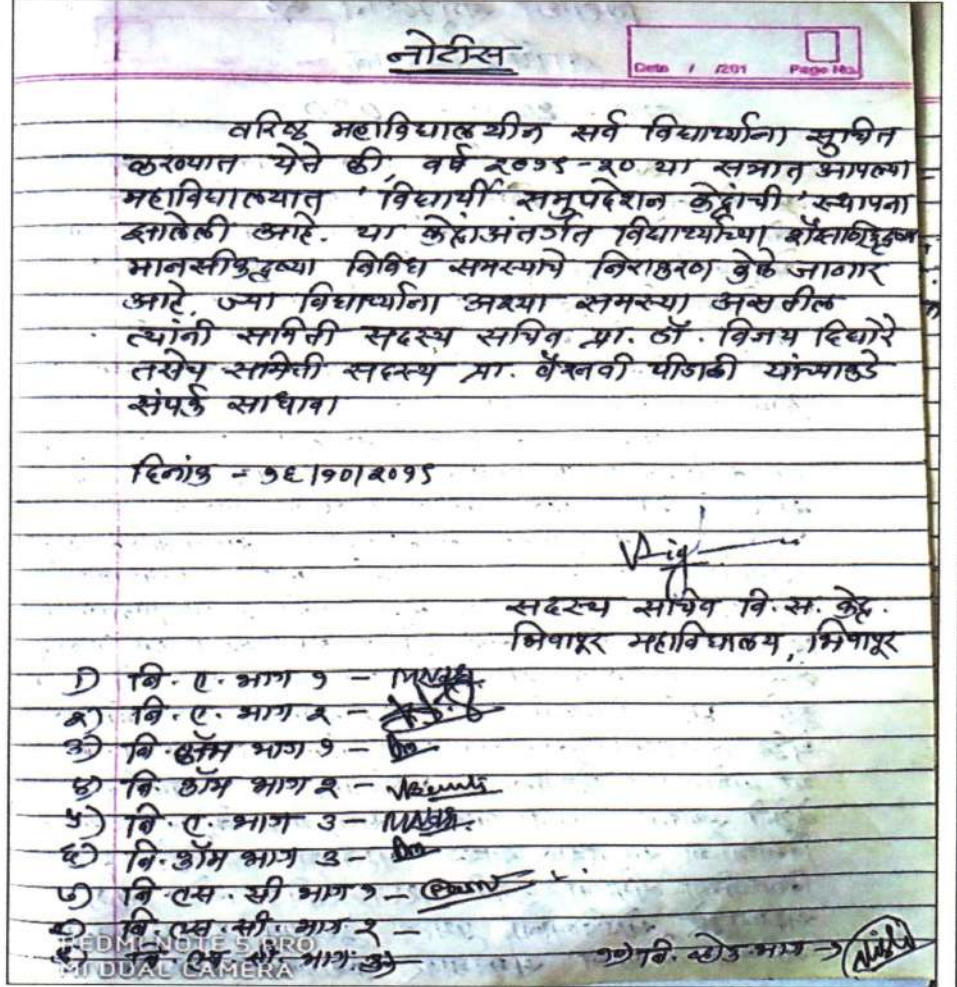 नोटीस
Date / /201 Page No.
वरिष्ठ महाविद्यालयीन सर्व विद्यार्थ्यांना सुचित
करण्यात येते की, वर्ष २०१९-२० या सत्रात आपल्या
महाविद्यालयात 'विद्यार्थी समुपदेशन केंद्राची' स्थापना
झालेली आहे. या केंद्राअंतर्गत विद्यार्थ्यांच्या शैक्षणिकदृष्ट्या
मानसीकदृष्ट्या विविध समस्याचे निराकरण केले जाणार
आहे. ज्या विद्यार्थ्यांना अश्या समस्या असतील
त्यांनी समिती सदस्य सचिव प्रा. डॉ. विजय दिघोरे
तसेच समिती सदस्य प्रा. वैष्णवी यांच्याकडे
संपर्क साधावा
दिनांक - १६/१०/२०१९
सदस्य सचिव वि. स. केंद्र.
भिवापूर महाविद्यालय, भिवापूर
१) बि. ए. भाग १ -
२) बि. ए. भाग २ -
३) बि कॉम भाग १ -
४) बि. कॉम भाग २ -
५) बि. ए. भाग ३ -
६) बि. कॉम भाग ३ -
७) बि. एस. सी भाग १ -
८) बि. एस. सी. भाग २ -
९) बि. एस. सी. भाग ३
१०) बि. होक. भाग
REDMI NOTE 5 PRO
MI DUAL CAMERA